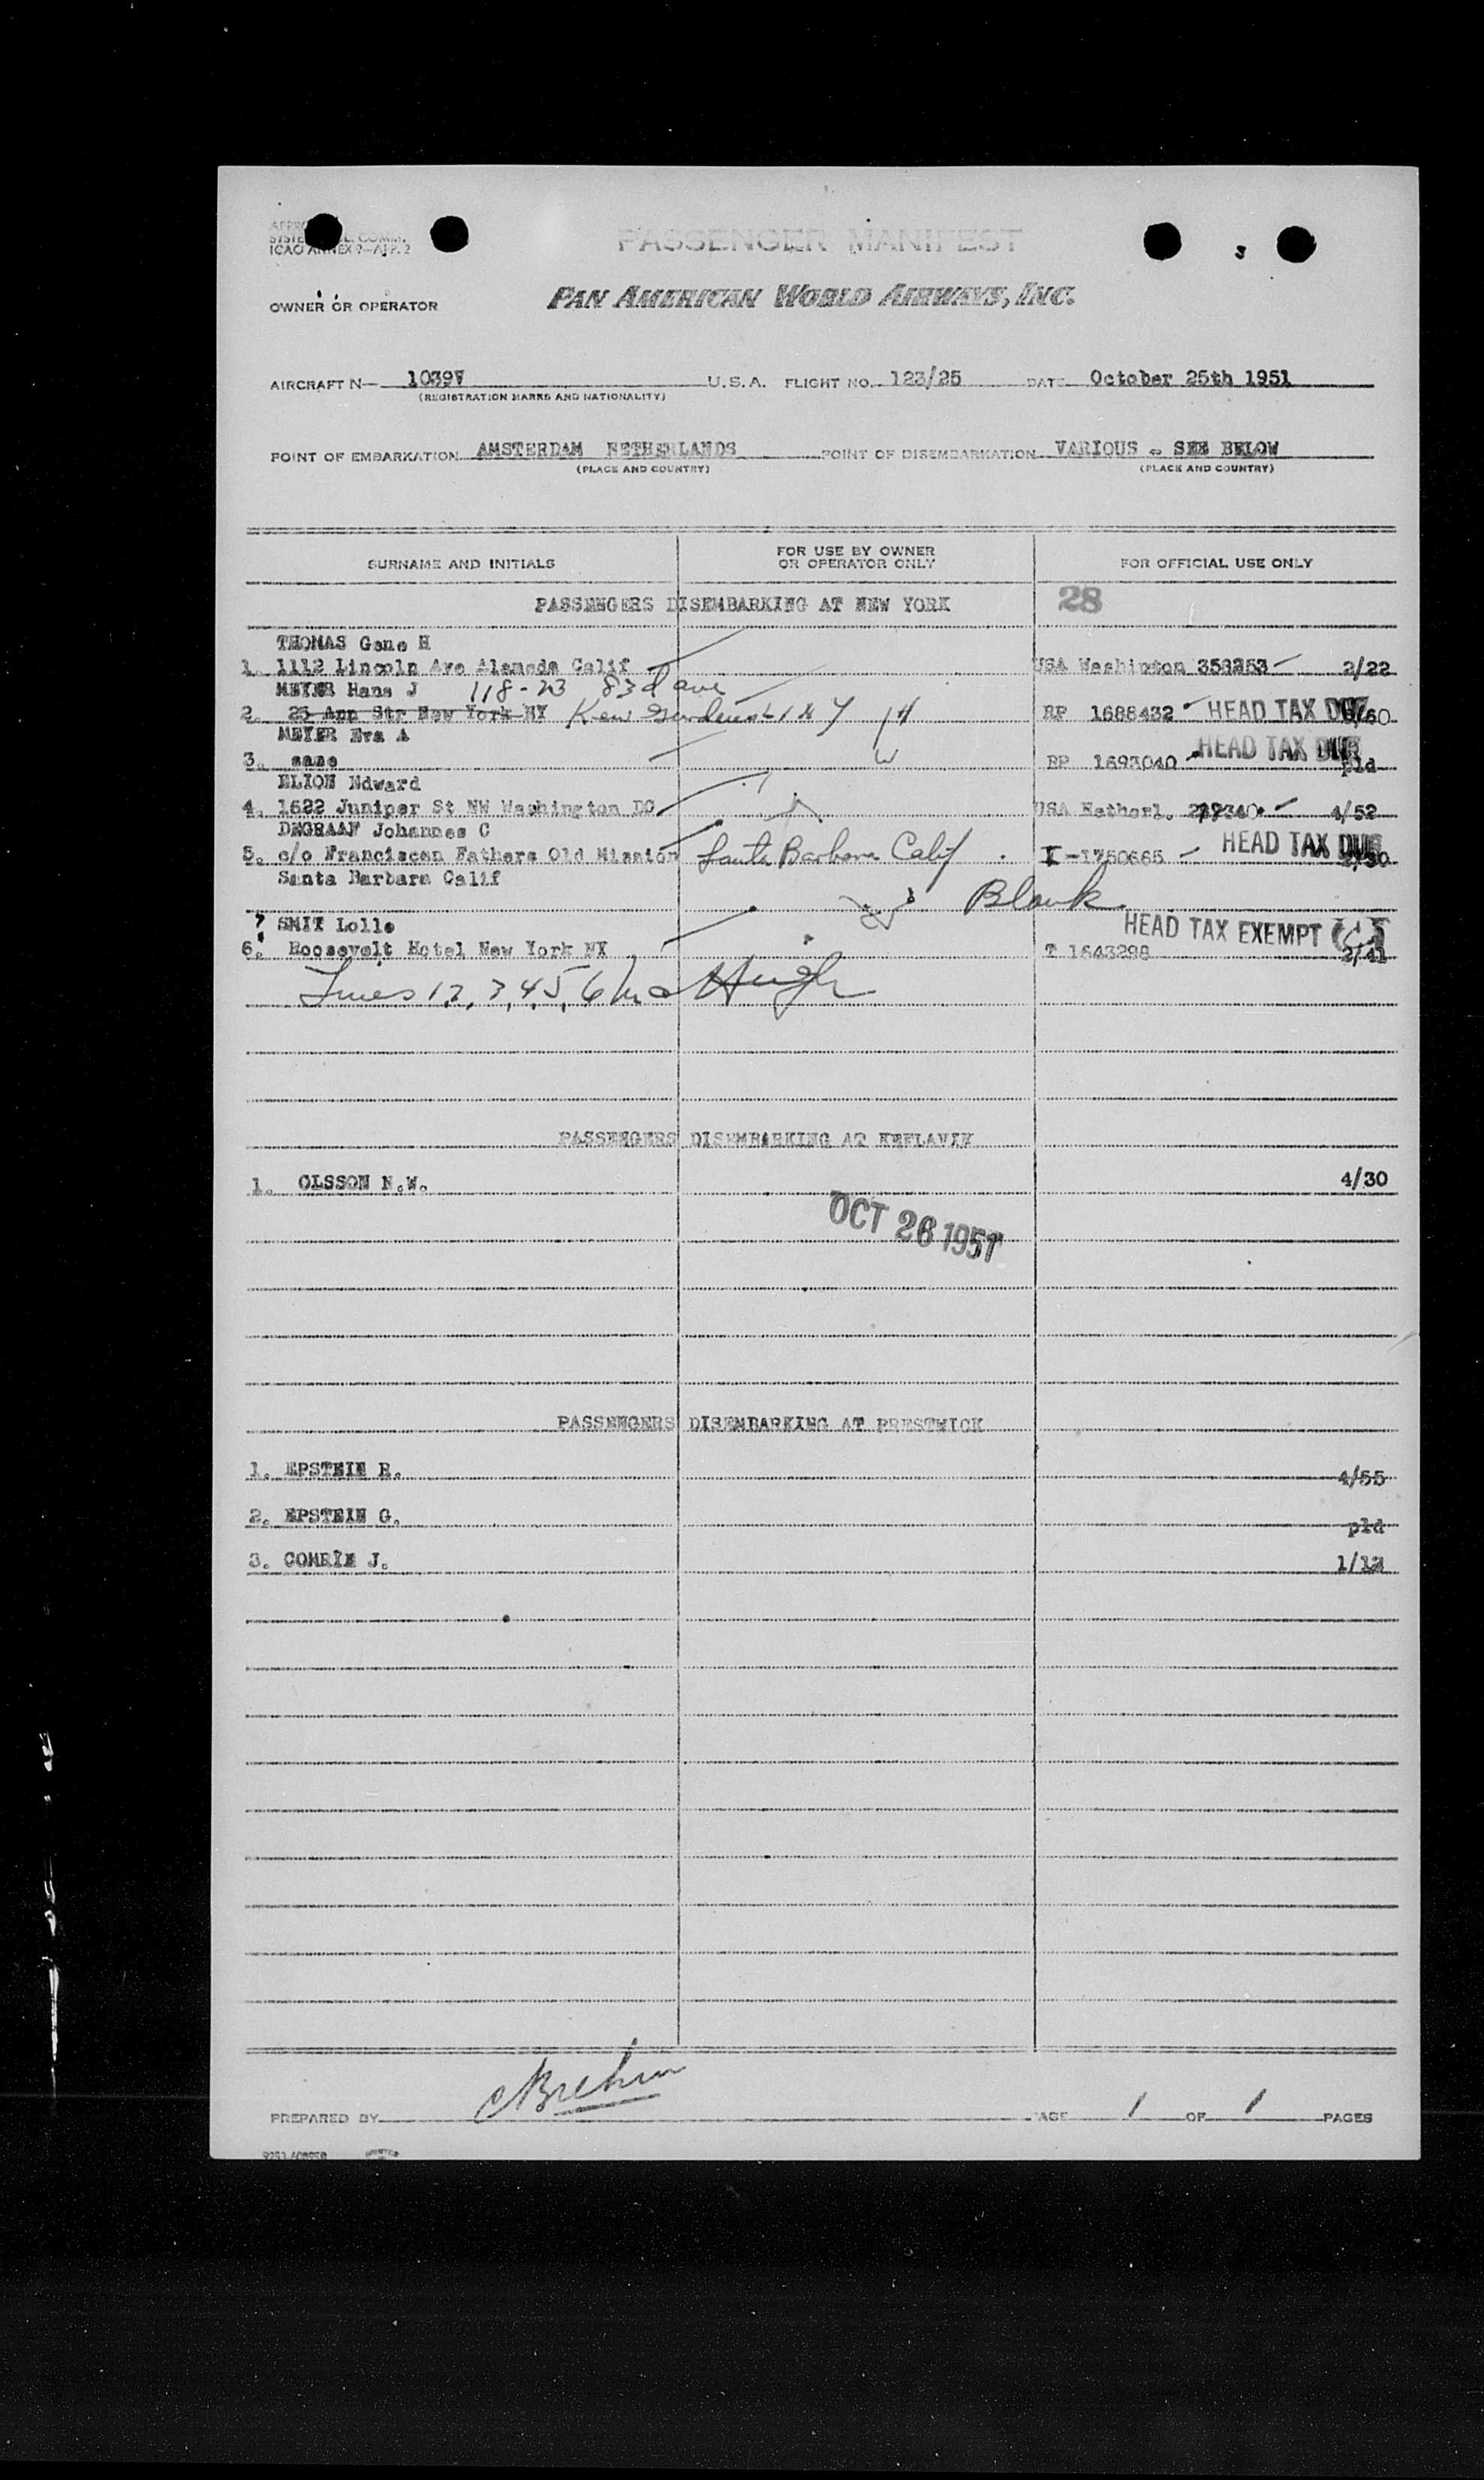 ICAO ANNEX 9-APP. 2
PASSENGER MANIFEST
3
OWNER OR OPERATOR
PAN AMERICAN WORLD AIRWAYS, INC.
AIRCRAFT N— 1039V U.S.A. FLIGHT NO. 123/25 DATE October 25th 1951
(REGISTRATION MARKS AND NATIONALITY)
POINT OF EMBARKATION AMSTERDAM NETHERLANDS POINT OF DISEMBARKATION VARIOUS - SEE BELOW
(PLACE AND COUNTRY) (PLACE AND COUNTRY)
SURNAME AND INITIALS FOR USE BY OWNER OR OPERATOR ONLY FOR OFFICIAL USE ONLY
PASSENGERS DISEMBARKING AT NEW YORK 28
THOMAS Gene H
1. 1112 Lincoln Ave Alameda Calif USA Washington 358353 2/22
MEYER Hans J 118-23 83d ave
2. 25 Ann Str New York NY Kew Gardens L I N Y H RP 1688432 HEAD TAX DUE /60
MEYER Eva A
3. same W RP 1693040 HEAD TAX DUE pld
ELION Edward
4. 1622 Juniper St NW Washington DC USA Netherl. 4/52
DEGRAAF Johannes C
5. c/o Franciscan Fathers Old Mission Santa Barbara Calif I-1750665 HEAD TAX DUE
Santa Barbara Calif
Blank
? SMIT Lolle HEAD TAX EXEMPT
6. Roosevelt Hotel New York NY T 1643298 2/41
Lines 1 2, 3, 4, 5, 6 McHugh
PASSENGERS DISEMBARKING AT KEFLAVIK
1. OLSSON N.W. 4/30
OCT 26 1951
PASSENGERS DISEMBARKING AT PRESTWICK
1. EPSTEIN R. 4/55
2. EPSTEIN G. pld
3. COHEIN J. 1/12
PREPARED BY CBrehm PAGE 1 OF 1 PAGES